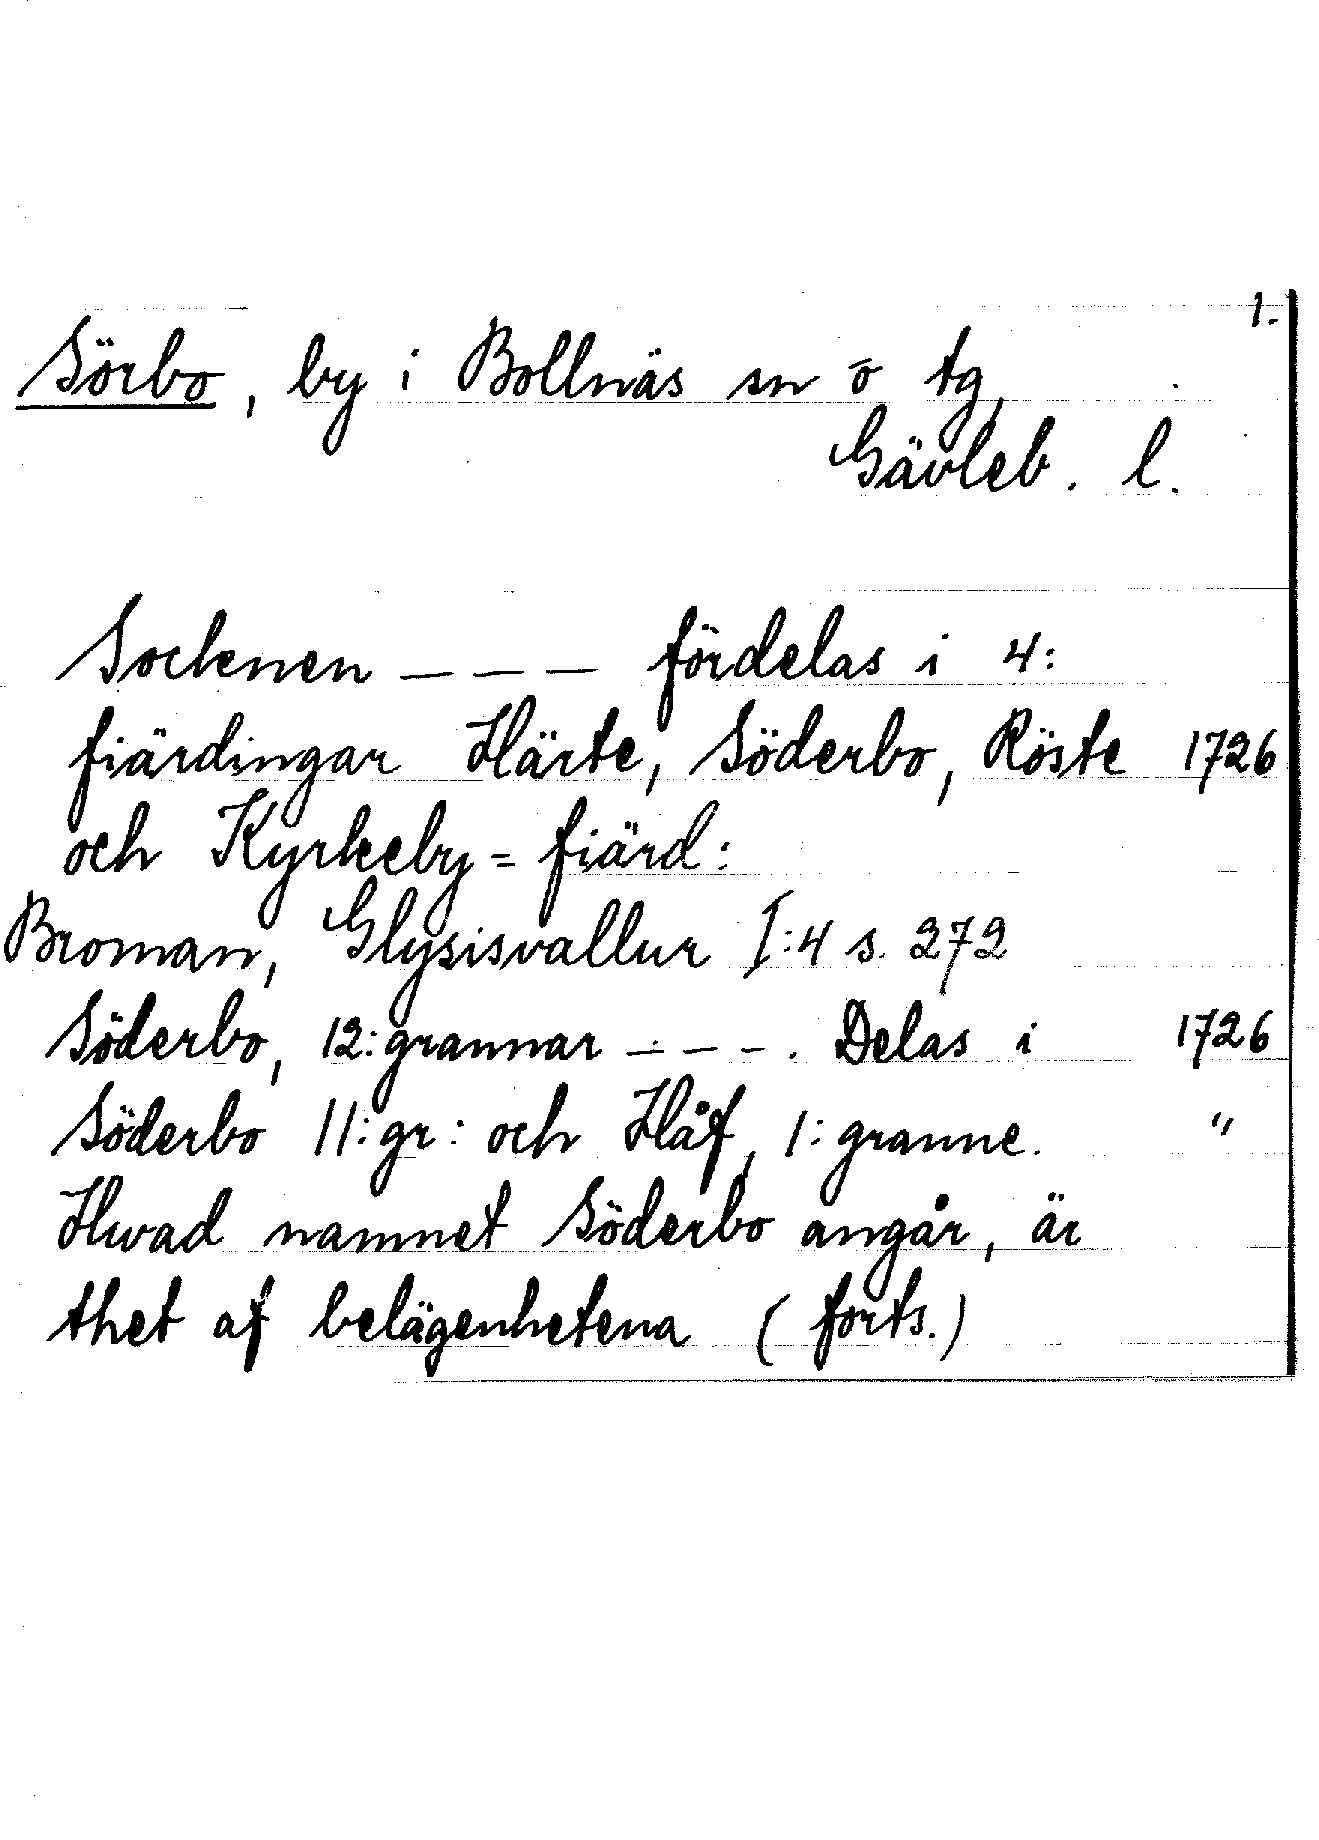 1.
Sörbo, by i Bollnäs sn o tg,
Gävleb. l.
Socknen _ _ _ fördelas i 4:
fiärdingar Härte, Söderbo, Röste 1726
och Kyrkeby=fiärd:
Broman, Glysisvallur I:4 s. 272
Söderbo, 12:grannar _ _ _. Delas i 1726
Söderbo 11:gr: och Håf, 1:granne. "
Hwad namnet Söderbo angår, är
thet af belägenhetena (forts.)